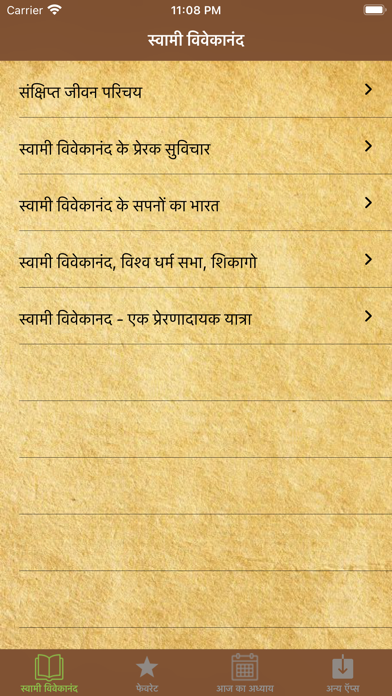 Carrier 11:08 PM
स्वामी विवेकानंद
संक्षिप्त जीवन परिचय
स्वामी विवेकानंद के प्रेरक सुविचार
स्वामी विवेकानंद के सपनों का भारत
स्वामी विवेकानंद, विश्व धर्म सभा, शिकागो
स्वामी विवेकानद - एक प्रेरणादायक यात्रा
स्वामी विवेकानंद फेवरेट आज का अध्याय अन्य ऍप्स